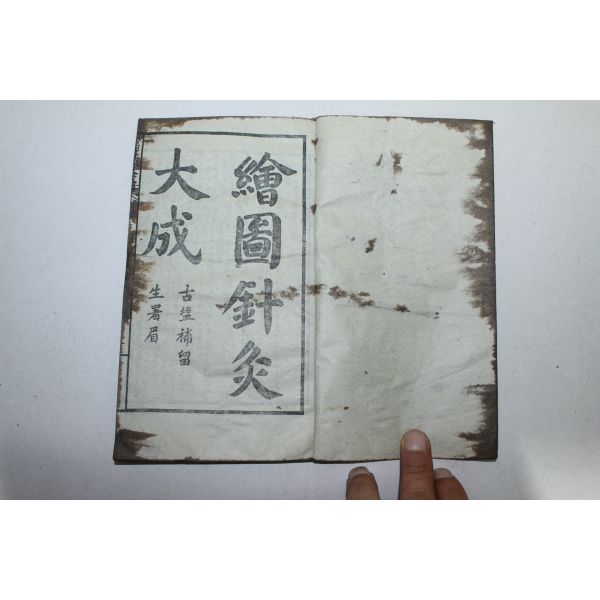 繪圖針灸
大成
古塩補留
生署眉